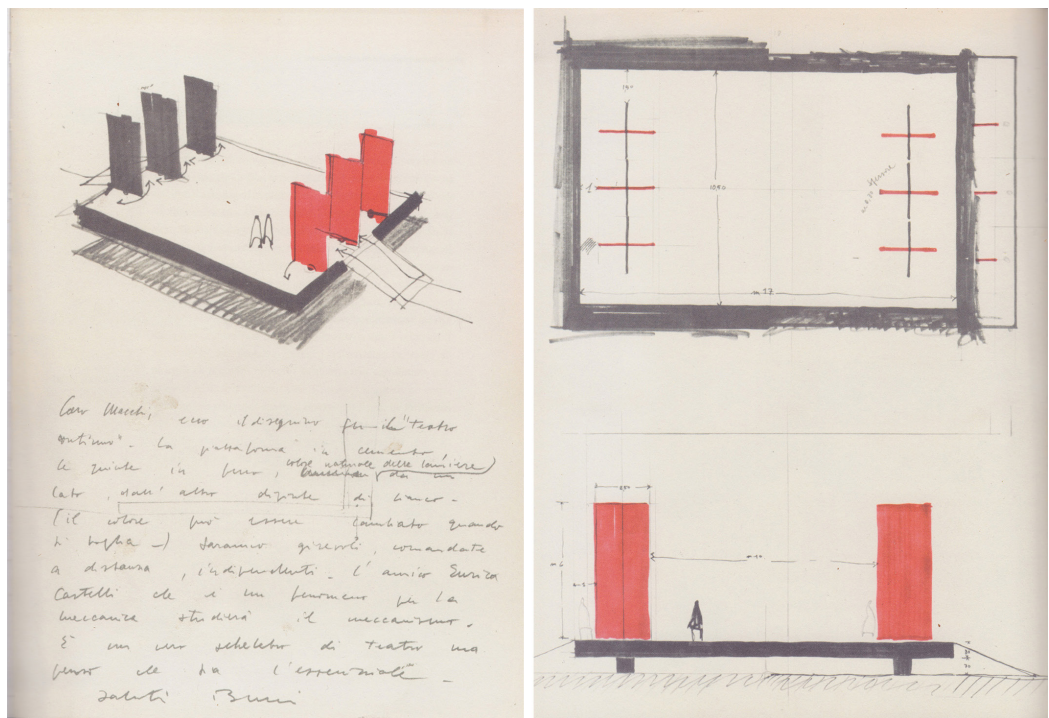 Caro Macchi, ecco il disegnino per il "teatro
continuo". La piattaforma in cemento
le quinte in ferro, (colore naturale delle lamiere) da un
lato, dall'altro dipinte di bianco -
(il colore può essere cambiato quando
si voglia -) saranno girevoli, comandate
a distanza, indipendenti. L'amico Enrico
Castelli che è un fenomeno per la
meccanica studierà il meccanismo.
È un vero scheletro di teatro ma
penso che ha l'essenziale -
saluti Burri
m 17
10,50